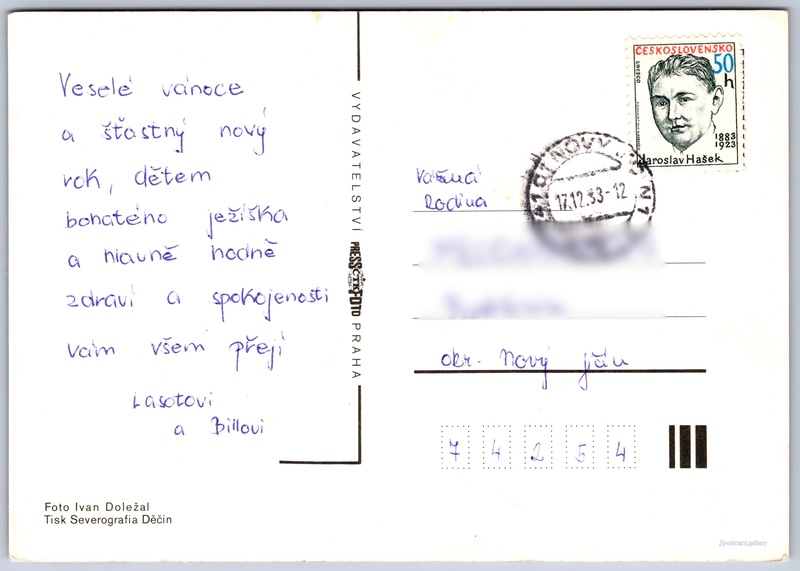 Veselé vánoce
a šťastný nový
rok, dětem
bohatého ježíška
a hlavně hodně
zdraví a spokojenosti
vám všem přejí
Lasotovi
a Billovi
Foto Ivan Doležal
Tisk Severografia Děčín
VYDAVATELSTVÍ PRESSFOTO PRAHA
ČESKOSLOVENSKO
50 h
UNESCO
1883
1923
Jaroslav Hašek
NOVÝ
17.12.83-12
Vážená
Rodina
okr. Nový jičín
7 4 2 5 4
//postcart.gallery